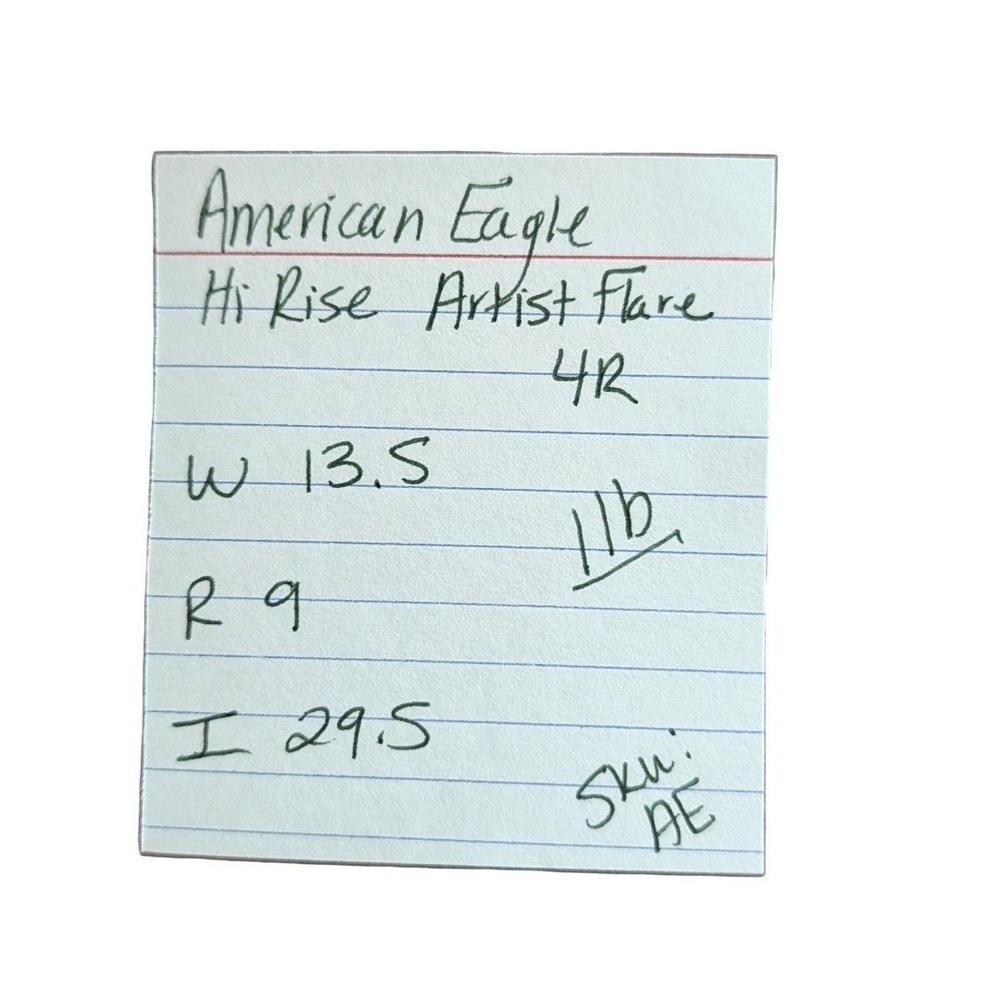 American Eagle
Hi Rise Artist Flare
4R
W 13.5
1lb
R 9
I 29.5
Sku:
AE